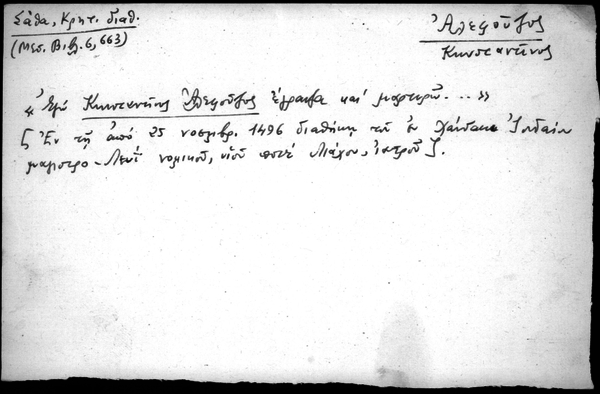 Σάθα, Κρητ. διαθ.
(Μεσ. Βιβλ. 6, 663)
Ἀλεφοῦζος
Κωνσταντῖνος
« Ἐγὼ Κωνσταντῖνος Ἀλεφοῦζος ἔγραψα καὶ μαρτυρῶ... »
[ Ἐν τῇ ἀπὸ 25 νοεμβρ. 1496 διαθήκῃ τοῦ ἐν Χάνδακι Ἰουδαίου
μαϊστρο-Λευῒ νομικοῦ, υἱοῦ ποτὲ ἰατροῦ ].